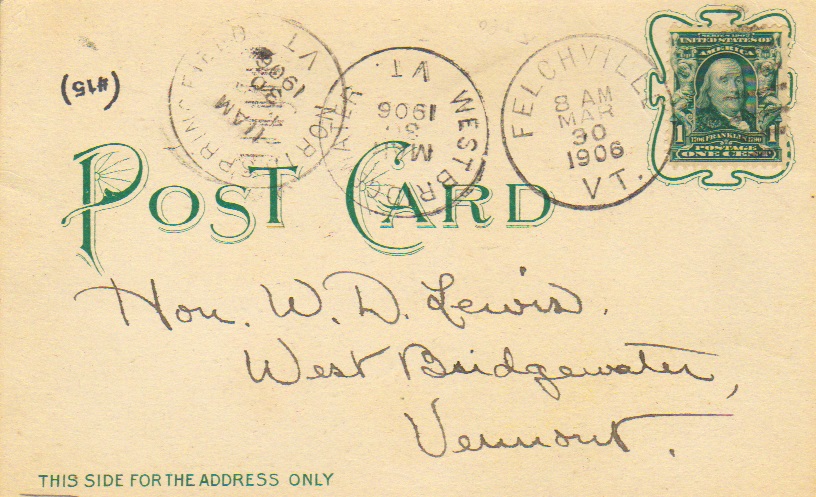 (#15)
NORTH SPRINGFIELD
11 AM
30
1906
VT.
WEST BRIDGEWATER
M
30
1906
VT.
FELCHVILLE
8 AM
MAR
30
1906
VT.
SERIES 1902
UNITED STATES OF
AMERICA
1 FRANKLIN 1
POSTAGE
ONE CENT
POST CARD
Hon. W. D. Lewis.
West Bridgewater,
Vermont.
THIS SIDE FOR THE ADDRESS ONLY